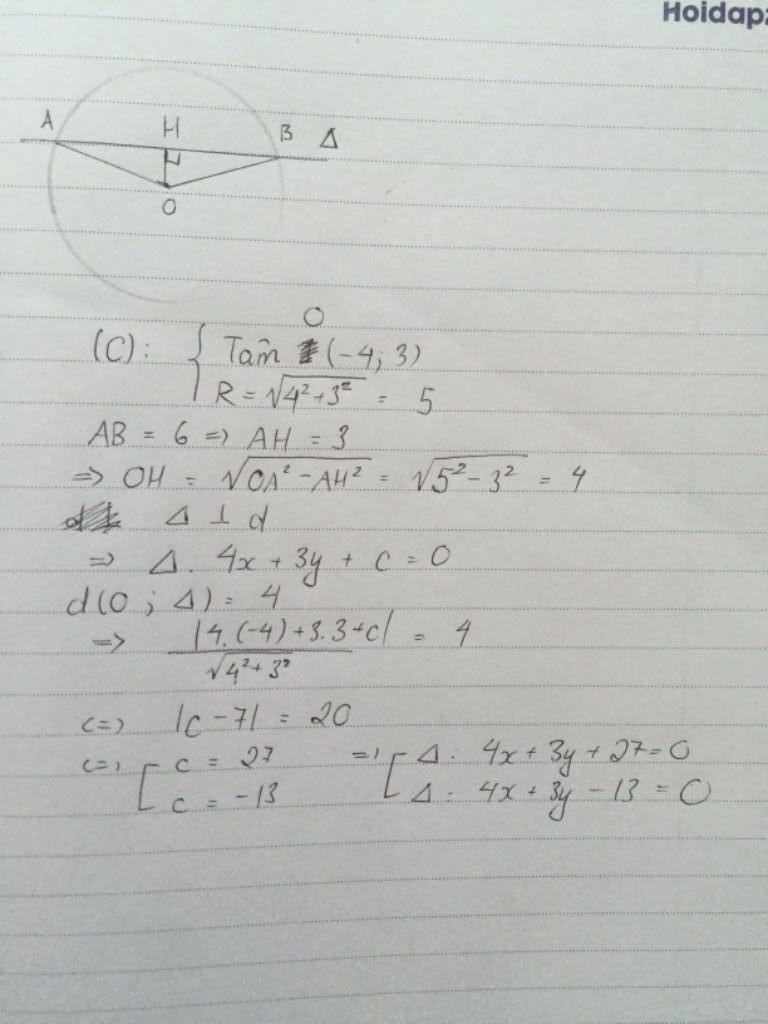 Hoidap2
A H B Δ
O
O
(C): { Tâm (-4; 3)
R = √4² + 3² = 5
AB = 6 => AH = 3
=> OH = √OA² - AH² = √5² - 3² = 4
Δ ⊥ d
=> Δ. 4x + 3y + c = 0
d(O ; Δ) = 4
=> |4.(-4) + 3.3 + c| / √4² + 3² = 4
<=> |c - 7| = 20
<=> [ c = 27 => [ Δ: 4x + 3y + 27 = 0
c = -13 Δ: 4x + 3y - 13 = 0